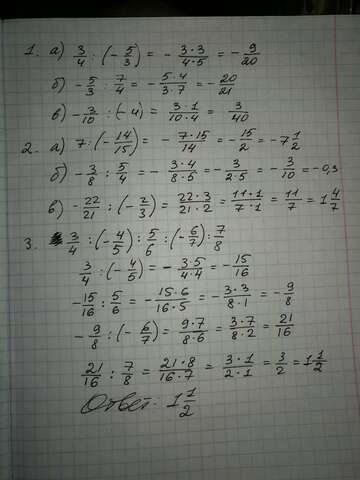 1. а) 3/4 : (- 5/3) = - 3·3/4·5 = - 9/20
б) - 5/3 : 7/4 = - 5·4/3·7 = - 20/21
в) - 3/10 : (- 4) = 3·1/10·4 = 3/40
2. а) 7 : (- 14/15) = - 7·15/14 = - 15/2 = - 7 1/2
б) - 3/8 : 5/4 = - 3·4/8·5 = - 3/2·5 = - 3/10 = -0,3
в) - 22/21 : (- 2/3) = 22·3/21·2 = 11·1/7·1 = 11/7 = 1 4/7
3. 3/4 : (- 4/5) : 5/6 : (- 6/7) : 7/8
3/4 : (- 4/5) = - 3·5/4·4 = - 15/16
- 15/16 : 5/6 = - 15·6/16·5 = - 3·3/8·1 = - 9/8
- 9/8 : (- 6/7) = 9·7/8·6 = 3·7/8·2 = 21/16
21/16 : 7/8 = 21·8/16·7 = 3·1/2·1 = 3/2 = 1 1/2
Ответ: 1 1/2